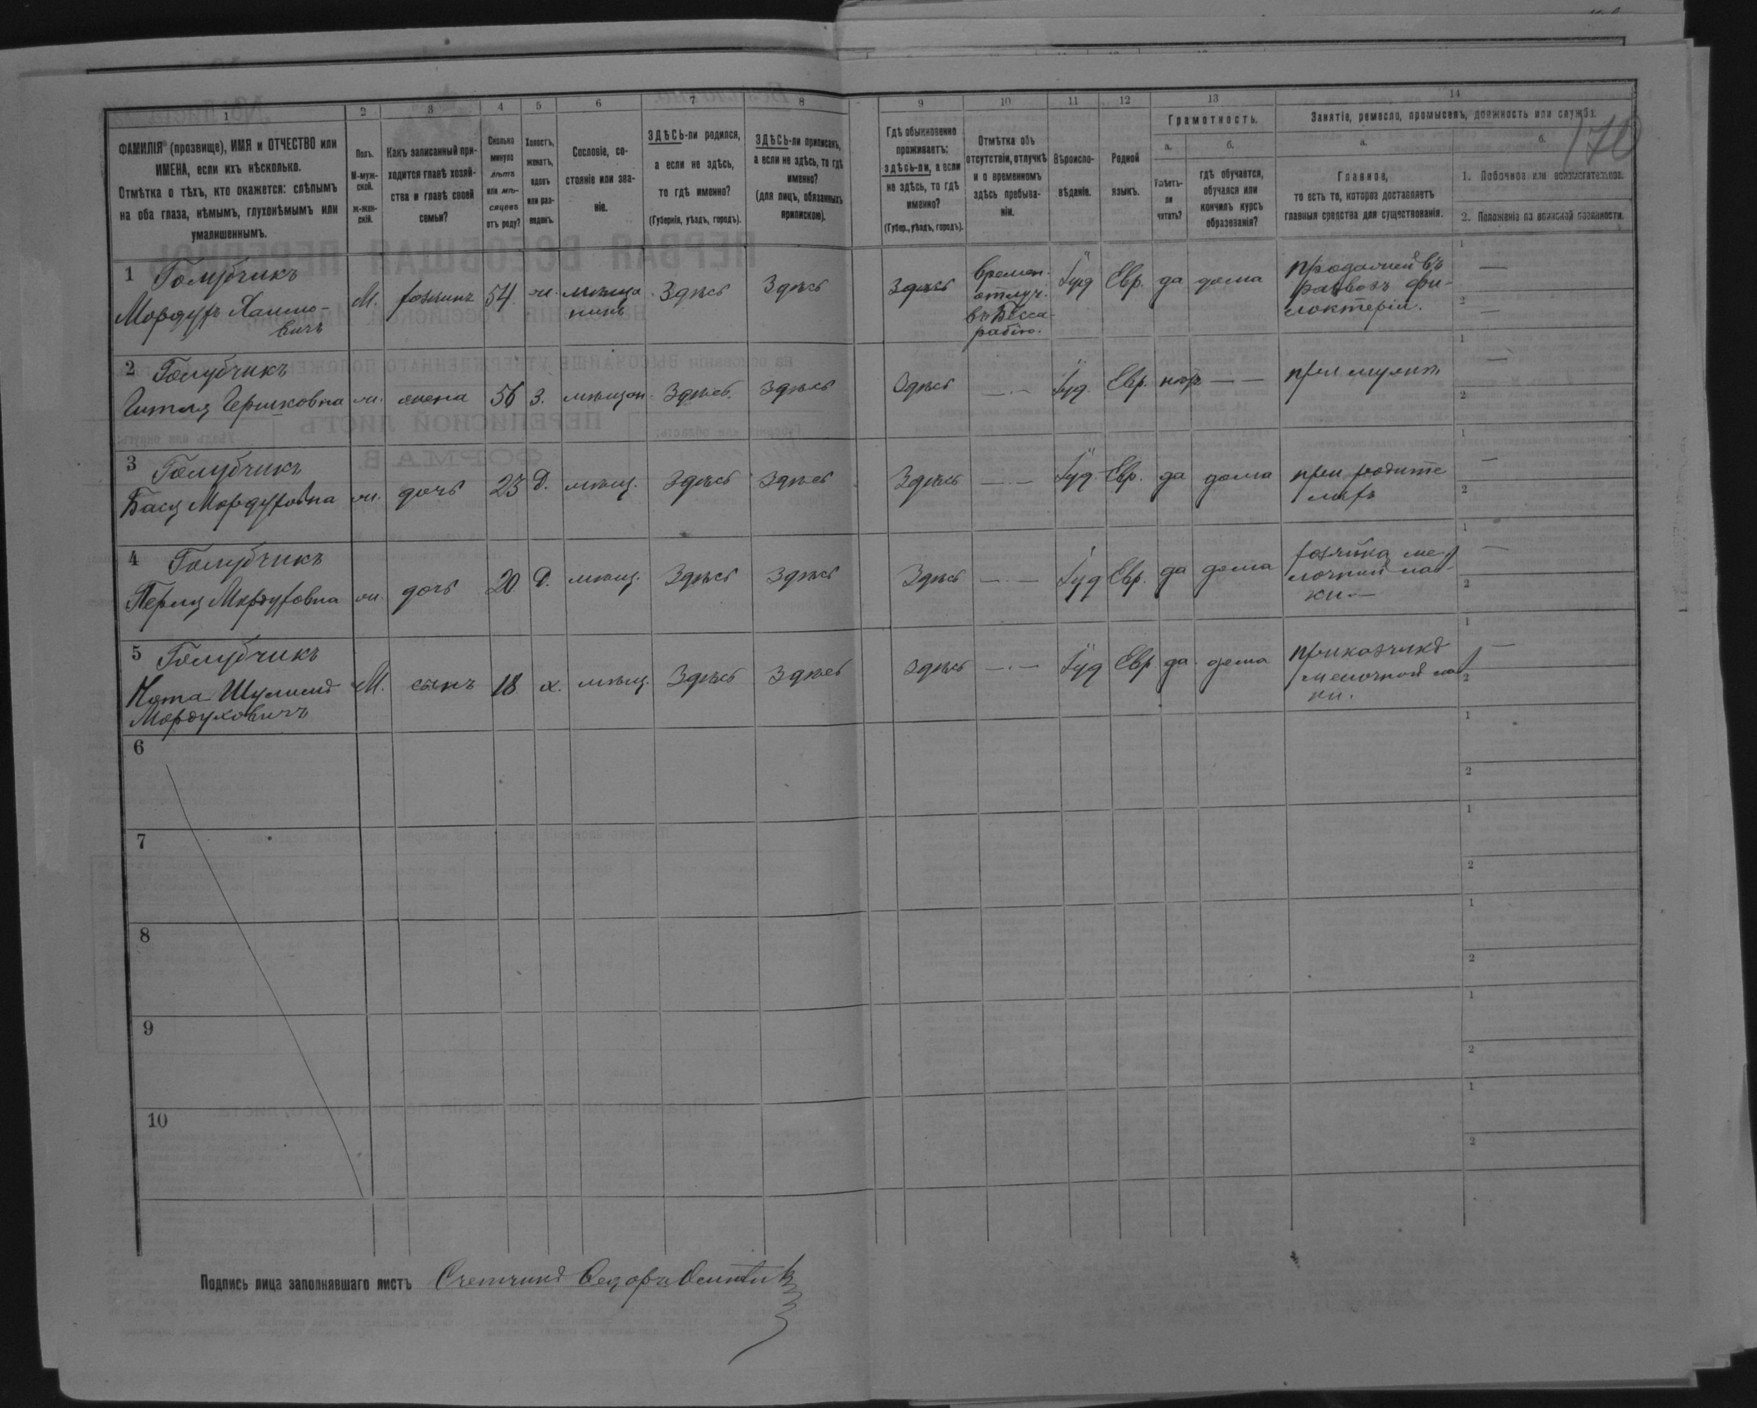 1 2 3 4 5 6 7 8 9 10 11 12 13 14
ФАМИЛІЯ (прозвище), ИМЯ и ОТЧЕСТВО или
ИМЕНА, если ихъ нѣсколько.
Отмѣтка о тѣхъ, кто окажется: слѣпымъ
на оба глаза, нѣмымъ, глухонѣмымъ или
умалишеннымъ.
Полъ.
М-муж-
ской.
ж-жен-
скій.
Какъ записанный при-
ходится главѣ хозяй-
ства и главѣ своей
семьи?
Сколько
минуло
лѣтъ
или мѣ-
сяцевъ
отъ роду?
Холостъ,
женатъ,
вдовъ
или раз-
веденъ.
Сословіе, со-
стояніе или зва-
ніе.
ЗДѢСЬ-ли родился,
а если не здѣсь,
то гдѣ именно?
(Губернія, уѣздъ, городъ).
ЗДѢСЬ-ли приписанъ,
а если не здѣсь, то гдѣ
именно?
(для лицъ, обязанныхъ
припискою).
Гдѣ обыкновенно
проживаетъ:
здѣсь-ли, а если
не здѣсь, то гдѣ
именно?
(Губер., уѣздъ, городъ).
Отмѣтка объ
отсутствіи, отлучкѣ
и о временномъ
здѣсь пребыва-
ніи.
Вѣроиспо-
вѣданіе.
Родной
языкъ.
Грамотность.
а.
Умѣетъ-
ли
читать?
б.
гдѣ обучается,
обучался или
кончилъ курсъ
образованія?
Занятіе, ремесло, промыселъ, должность или служба.
а.
Главное,
то есть то, которое доставляетъ
главныя средства для существованія.
б.
1. Побочное или вспомогательное.
2. Положеніе по воинской повинности.
170
1 Голубчикъ
Мордухъ Хаимо-
вичъ
М. хозяинъ 54. ж. мѣща
нинъ Здѣсь Здѣсь Здѣсь времен.
отлуч.
въ Бесса-
рабію. Іуд Евр. да дома
1 —
2 —
2 Голубчикъ
Гитля Гершковна ж. жена 56 З. мѣщан. Здѣсь. Здѣсь Здѣсь — Іуд. Евр. — — при мужѣ
1 —
2
3 Голубчикъ
Бася Мордуховна ж. дочь 23 Д. мѣщ. Здѣсь Здѣсь Здѣсь — Іуд. Евр. да дома при родите
ляхъ
1 —
2
4 Голубчикъ
Перля Мордуховна ж. дочь 20 Д. мѣщ. Здѣсь Здѣсь Здѣсь — Іуд Евр. да дома хозяйка ме-
лочной лав-
ки —
1 —
2
5 Голубчикъ
Мордуховичъ
М. сынъ 18 х. мѣщ. Здѣсь Здѣсь Здѣсь — Іуд Евр да дома приказчикъ
мелочной лав
ки.
1 —
2
6
1
2
7
1
2
8
1
2
9
1
2
10
1
2
Подпись лица заполнявшаго листъ Счетчикъ